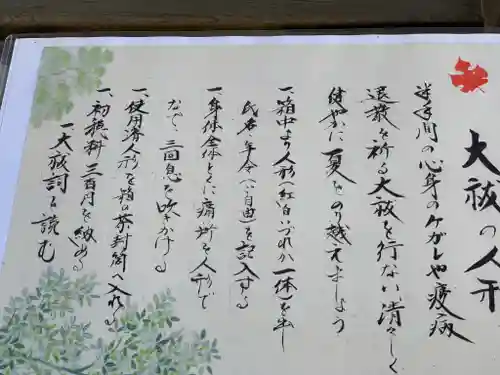 大祓の人形
半年間の心身のケガレや疫病
退散を祈る大祓を行ない清々しく
健やかに夏をのり越えましょう
一、箱中より人形(紅白いづれか一体)を出し
氏名・年令(い自由)を記入する
一、身体全体とくに痛む所を人形で
なで、三回息を吹きかける
一、使用済人形を箱の茶封筒へ入れる
一、初穂料三百円を納める
一、大祓詞を読む